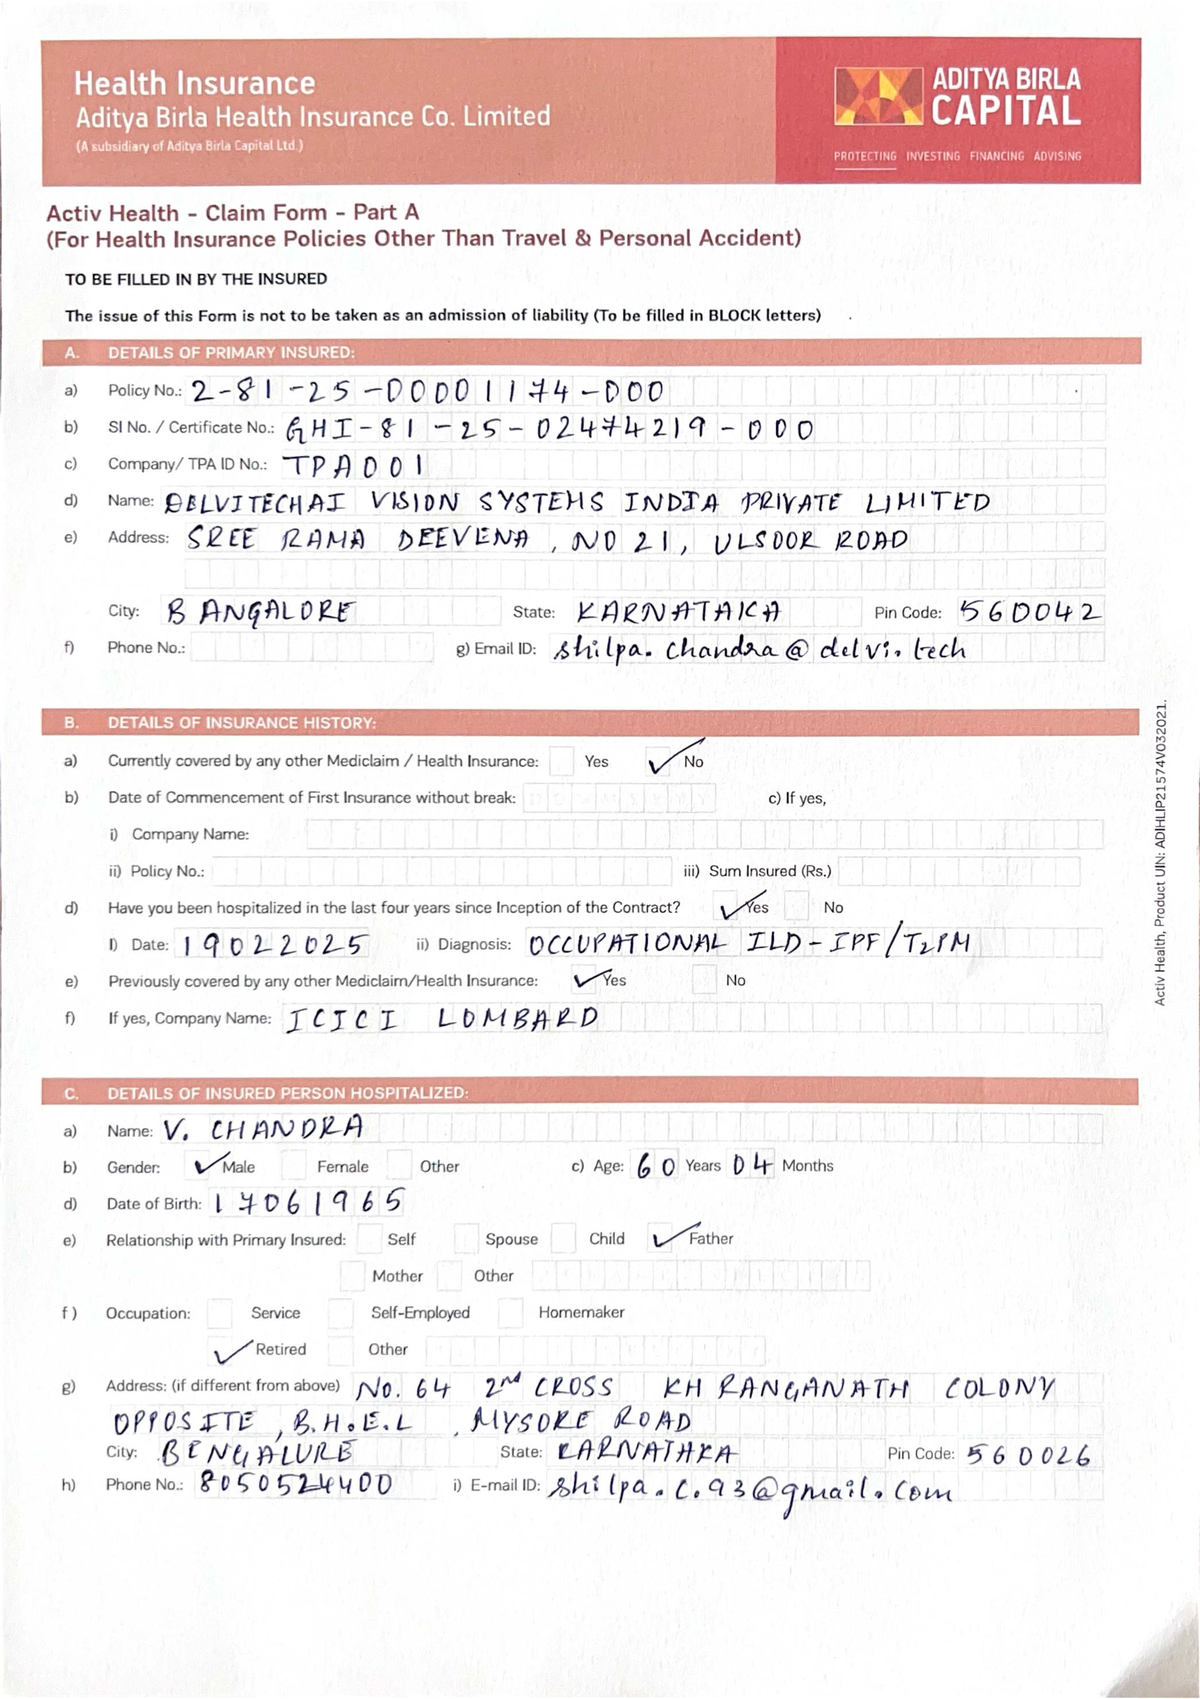 Health Insurance
Aditya Birla Health Insurance Co. Limited
(A subsidiary of Aditya Birla Capital Ltd.)
ADITYA BIRLA
CAPITAL
PROTECTING INVESTING FINANCING ADVISING
Activ Health - Claim Form - Part A
(For Health Insurance Policies Other Than Travel & Personal Accident)
TO BE FILLED IN BY THE INSURED
The issue of this Form is not to be taken as an admission of liability (To be filled in BLOCK letters)
A. DETAILS OF PRIMARY INSURED:
a) Policy No.: 2-81-25-00001174-000
b) SI No. / Certificate No.: GHI-81-25-02474219-000
c) Company/ TPA ID No.: TPA001
d) Name: DELVITECHAI VISION SYSTEMS INDIA PRIVATE LIMITED
e) Address: SREE RAMA DEEVENA, NO 21, ULSOOR ROAD
City: BANGALORE State: KARNATAKA Pin Code: 560042
f) Phone No.: g) Email ID: shilpa.chandra@delvi.tech
B. DETAILS OF INSURANCE HISTORY:
a) Currently covered by any other Mediclaim / Health Insurance: Yes ✓ No
b) Date of Commencement of First Insurance without break: c) If yes,
i) Company Name:
ii) Policy No.: iii) Sum Insured (Rs.)
d) Have you been hospitalized in the last four years since Inception of the Contract? ✓ Yes No
I) Date: 19022025 ii) Diagnosis: OCCUPATIONAL ILD-IPF/T2PM
e) Previously covered by any other Mediclaim/Health Insurance: ✓ Yes No
f) If yes, Company Name: ICICI LOMBARD
C. DETAILS OF INSURED PERSON HOSPITALIZED:
a) Name: V. CHANDRA
b) Gender: ✓ Male Female Other c) Age: 60 Years 04 Months
d) Date of Birth: 17061965
e) Relationship with Primary Insured: Self Spouse Child ✓ Father
Mother Other
f) Occupation: Service Self-Employed Homemaker
✓ Retired Other
g) Address: (if different from above) No. 64 2nd CROSS KH RANGANATH COLONY
OPPOSITE, B.H.E.L, MYSORE ROAD
City: BENGALURE State: KARNATHKA Pin Code: 560026
h) Phone No.: 8050524400 i) E-mail ID: shilpa.c.93@gmail.com
Activ Health, Product UIN: ADIHLIP21574V032021.